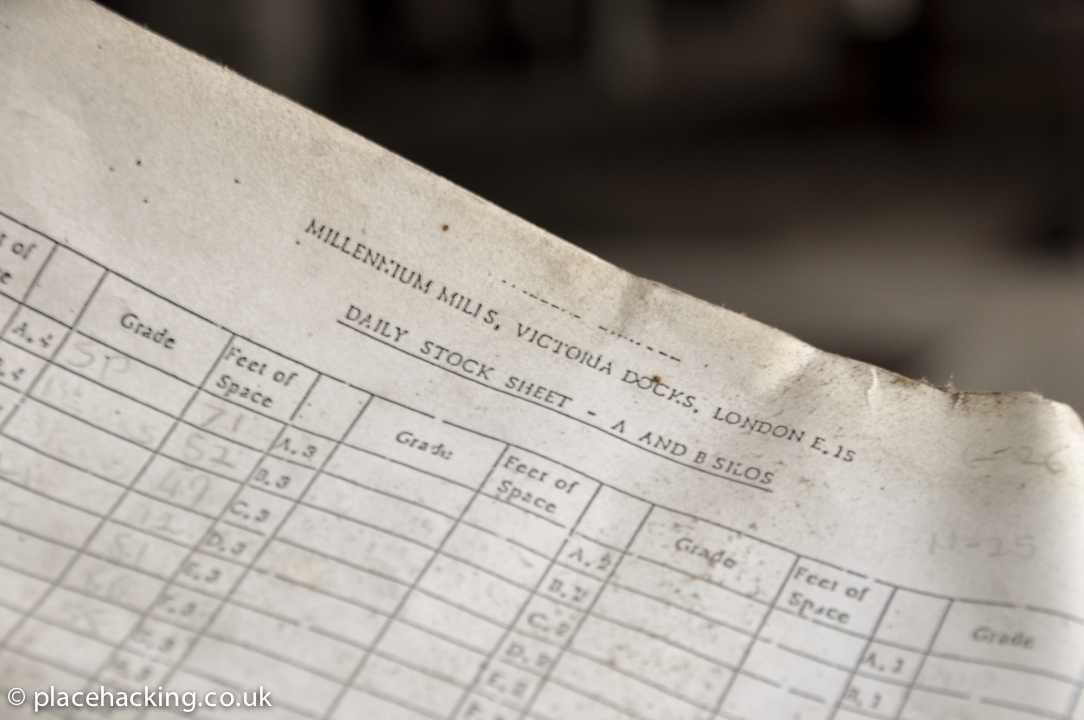 MILLENNIUM MILLS, VICTORIA DOCKS, LONDON E.15
DAILY STOCK SHEET - A AND B SILOS
Grade
Feet of
Space
Grade
Feet of
Space
Grade
Feet of
Space
Grade
A.4
SP
71
A.3
A.2
A.1
52
B.3
B.2
B.1
49
C.3
C.2
D.3
D.2
51
E.3
E.2
F.3
© placehacking.co.uk